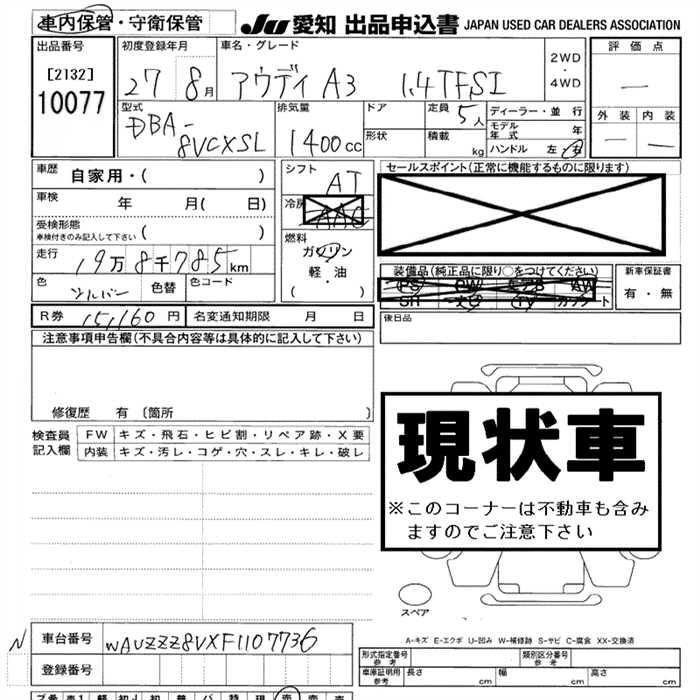 車内保管・守衛保管 JU 愛知 出品申込書 JAPAN USED CAR DEALERS ASSOCIATION
出品番号 初度登録年月 車名・グレード 2WD・4WD 評価点
[2132] 27 8月 アウディ A3 1.4TFSI —
10077 型式 排気量 ドア 定員 5人 ディーラー・並行 外装 内装
DBA-8VCXSL 1400cc 形状 積載 kg モデル年式 年 — —
ハンドル 左・右
車歴 自家用・( ) シフト AT セールスポイント(正常に機能するものに限ります)
車検 年 月( 日) 冷房 AAC
受検形態 ( )
車検付きのみ記入して下さい
燃料
走行 19万8千785km ガソリン
軽・油
・( )
装備品(純正品に限り○をつけてください) 新車保証書
PS PW AW 有・無
SR TV
色 シルバー 色替 色コード
R券 15,160円 名変通知期限 月 日 後日品
注意事項申告欄(不具合内容等は具体的に記入して下さい)
修復歴 有〔箇所 〕
検査員 FW キズ・飛石・ヒビ割・リペア跡・X要
記入欄 内装 キズ・汚レ・コゲ・穴・スレ・キレ・破レ
現状車
※このコーナーは不動車も含み
ますのでご注意下さい
スペア
N 車台番号 WAUZZZ8VXF1107736
A-キズ E-エクボ U-凹み W-補修跡 S-サビ C-腐食 XX-交換済
登録番号 形式指定番号 参考 類別区分番号 参考
車庫証明用 参考 長さ cm 幅 cm 高さ cm